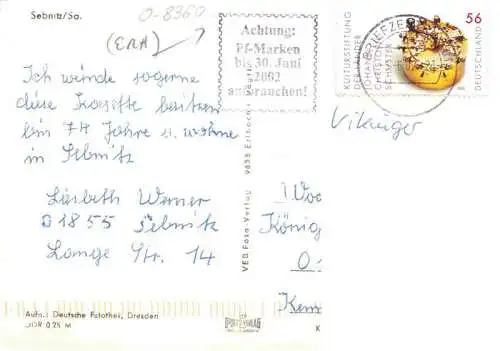 Sebnitz/Sa.
O-8360
(ERH)
Achtung:
Pf-Marken
bis 30. Juni
2002
aufbrauchen!
56
KULTURSTIFTUNG
DER LÄNDER
DEUTSCHLAND
BRIEFZE
Vikinger
Ich würde sogerne
diese Kasette besitzen
bin 74 Jahre u. wohne
in Sebnitz
Liesbeth Werner
O 1855 Sebnitz
Lange Str. 14
VEB Foto-Verlag 9653 Erlbach
Woc
König
O-
Kem
Aufn.: Deutsche Fotothek, Dresden
DDR 0.25 M
K